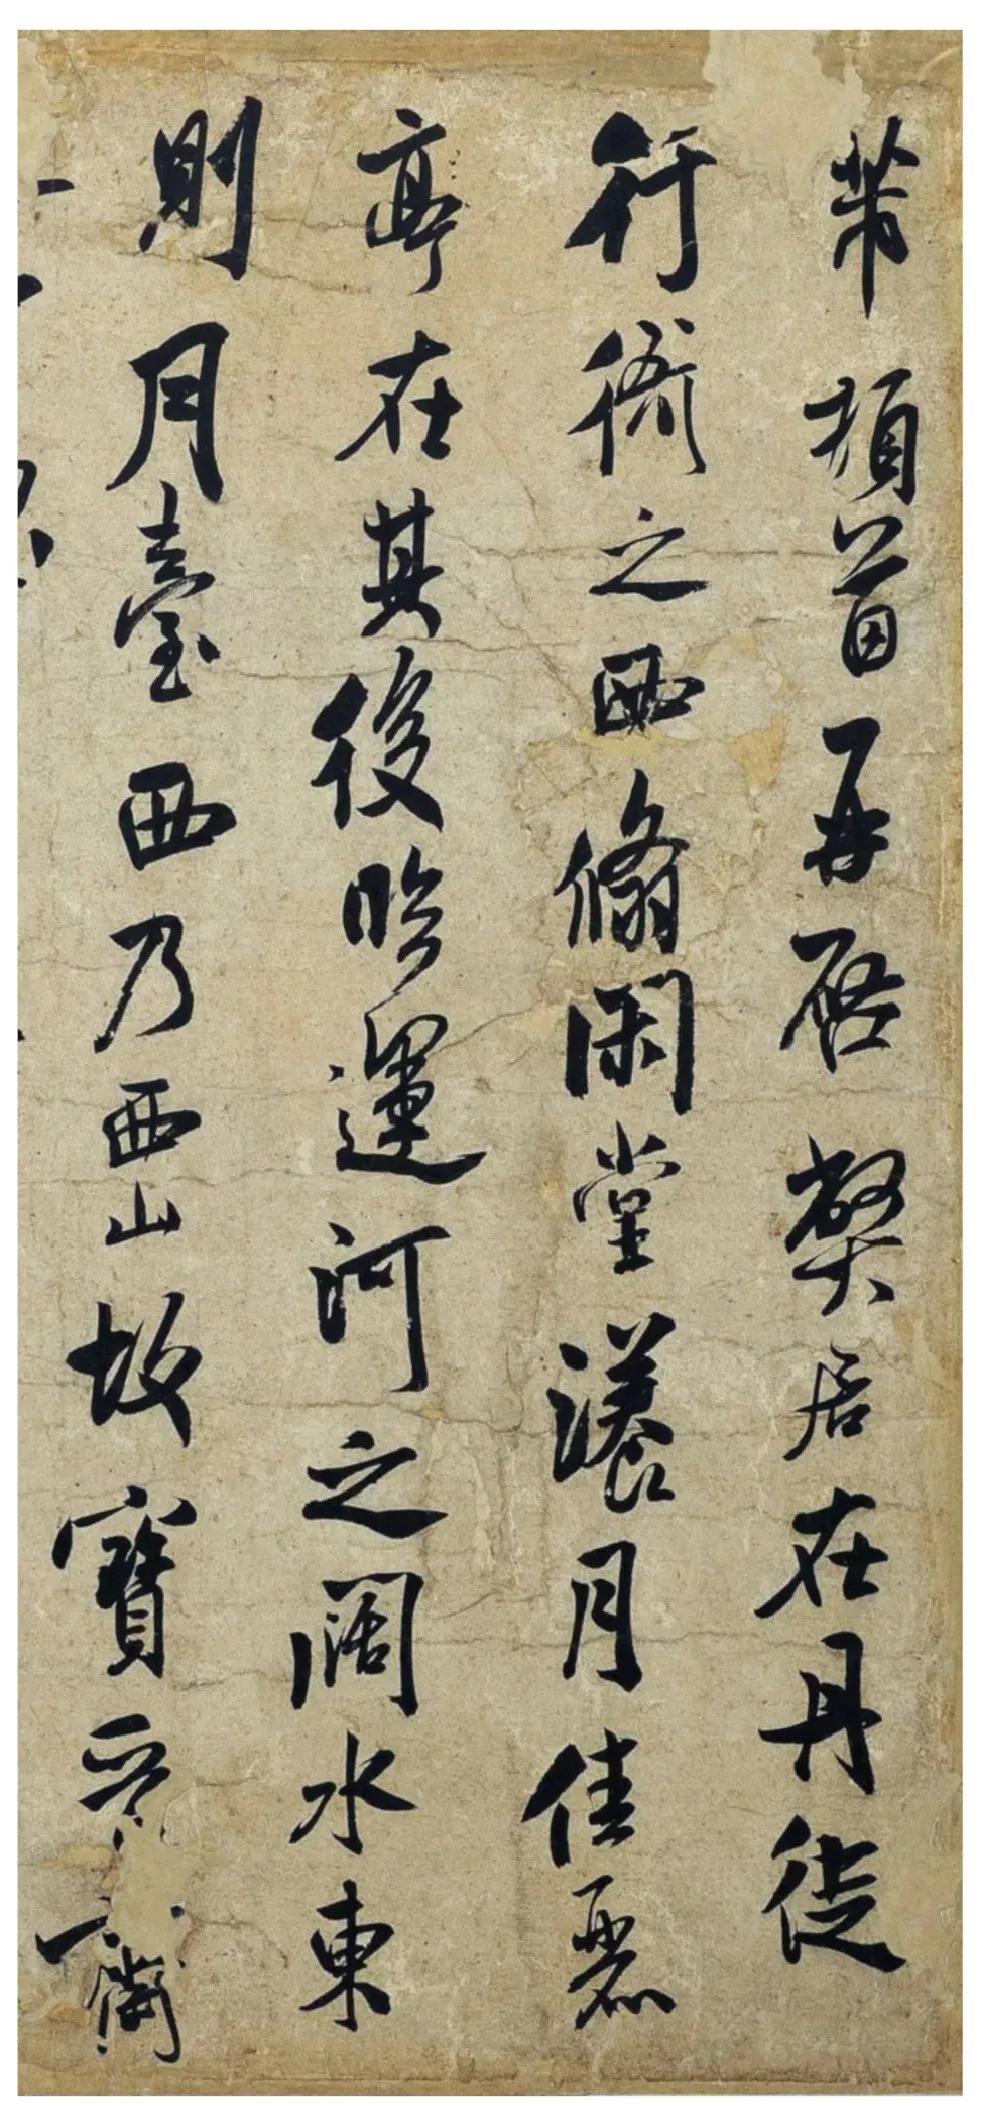 芾頓首再啓弊居在丹徒
行衙之西翛閑堂漾月佳麗
亭在其後臨運河之闊水東
則月臺西乃西山故寶晉齋